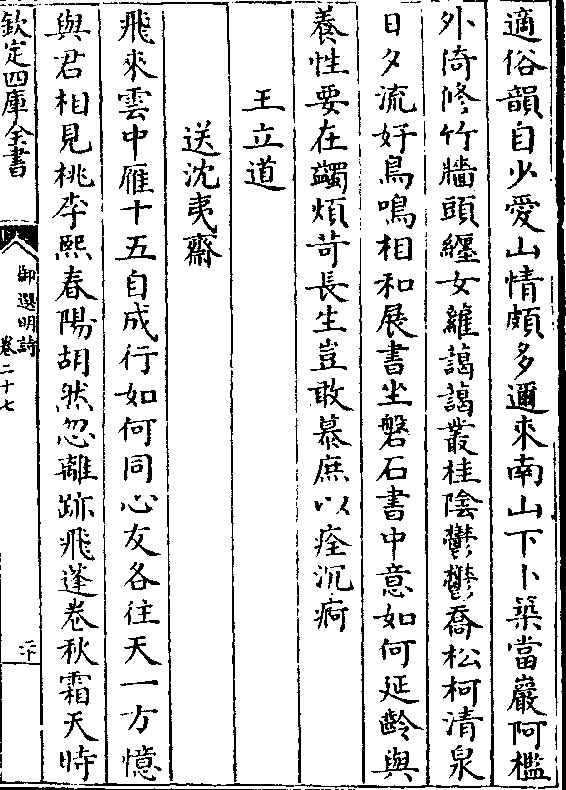 適俗韻自少愛山情頗多邇來南山下卜築當巖阿檻
外倚修竹牆頭纒女蘿藹藹叢桂陰鬱鬱喬松柯清泉
日夕流好鳥鳴相和展書坐磐石書中意如何延齡與
養性要在蠲煩苛長生豈敢慕庶以痊沉痾
王立道
送沈夷齋
飛來雲中雁十五自成行如何同心友各往天一方憶
與君相見桃李熙春陽胡然忽離跡飛蓬卷秋霜天時
欽定四庫全書
御選明詩
卷二十七
二十